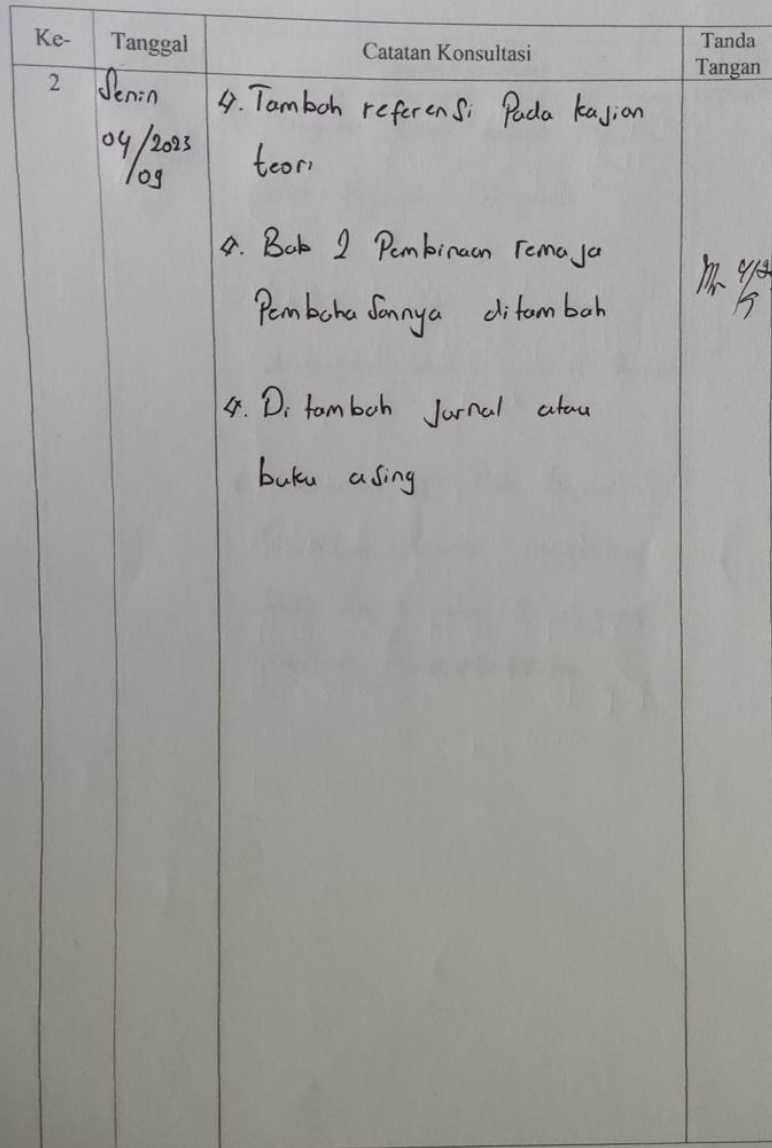 Ke- Tanggal Catatan Konsultasi Tanda
Tangan
2 Senin
04/2023
/09
4. Tambah referensi Pada kajian
teori
4. Bab 2 Pembinaan remaja
Pembahasannya ditambah
4. Di tambah Jurnal atau
buku asing